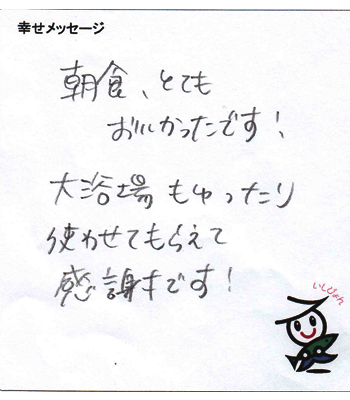 幸せメッセージ
朝食、とても
おいしかったです!
大浴場もゆったり
使わせてもらえて
感謝です!